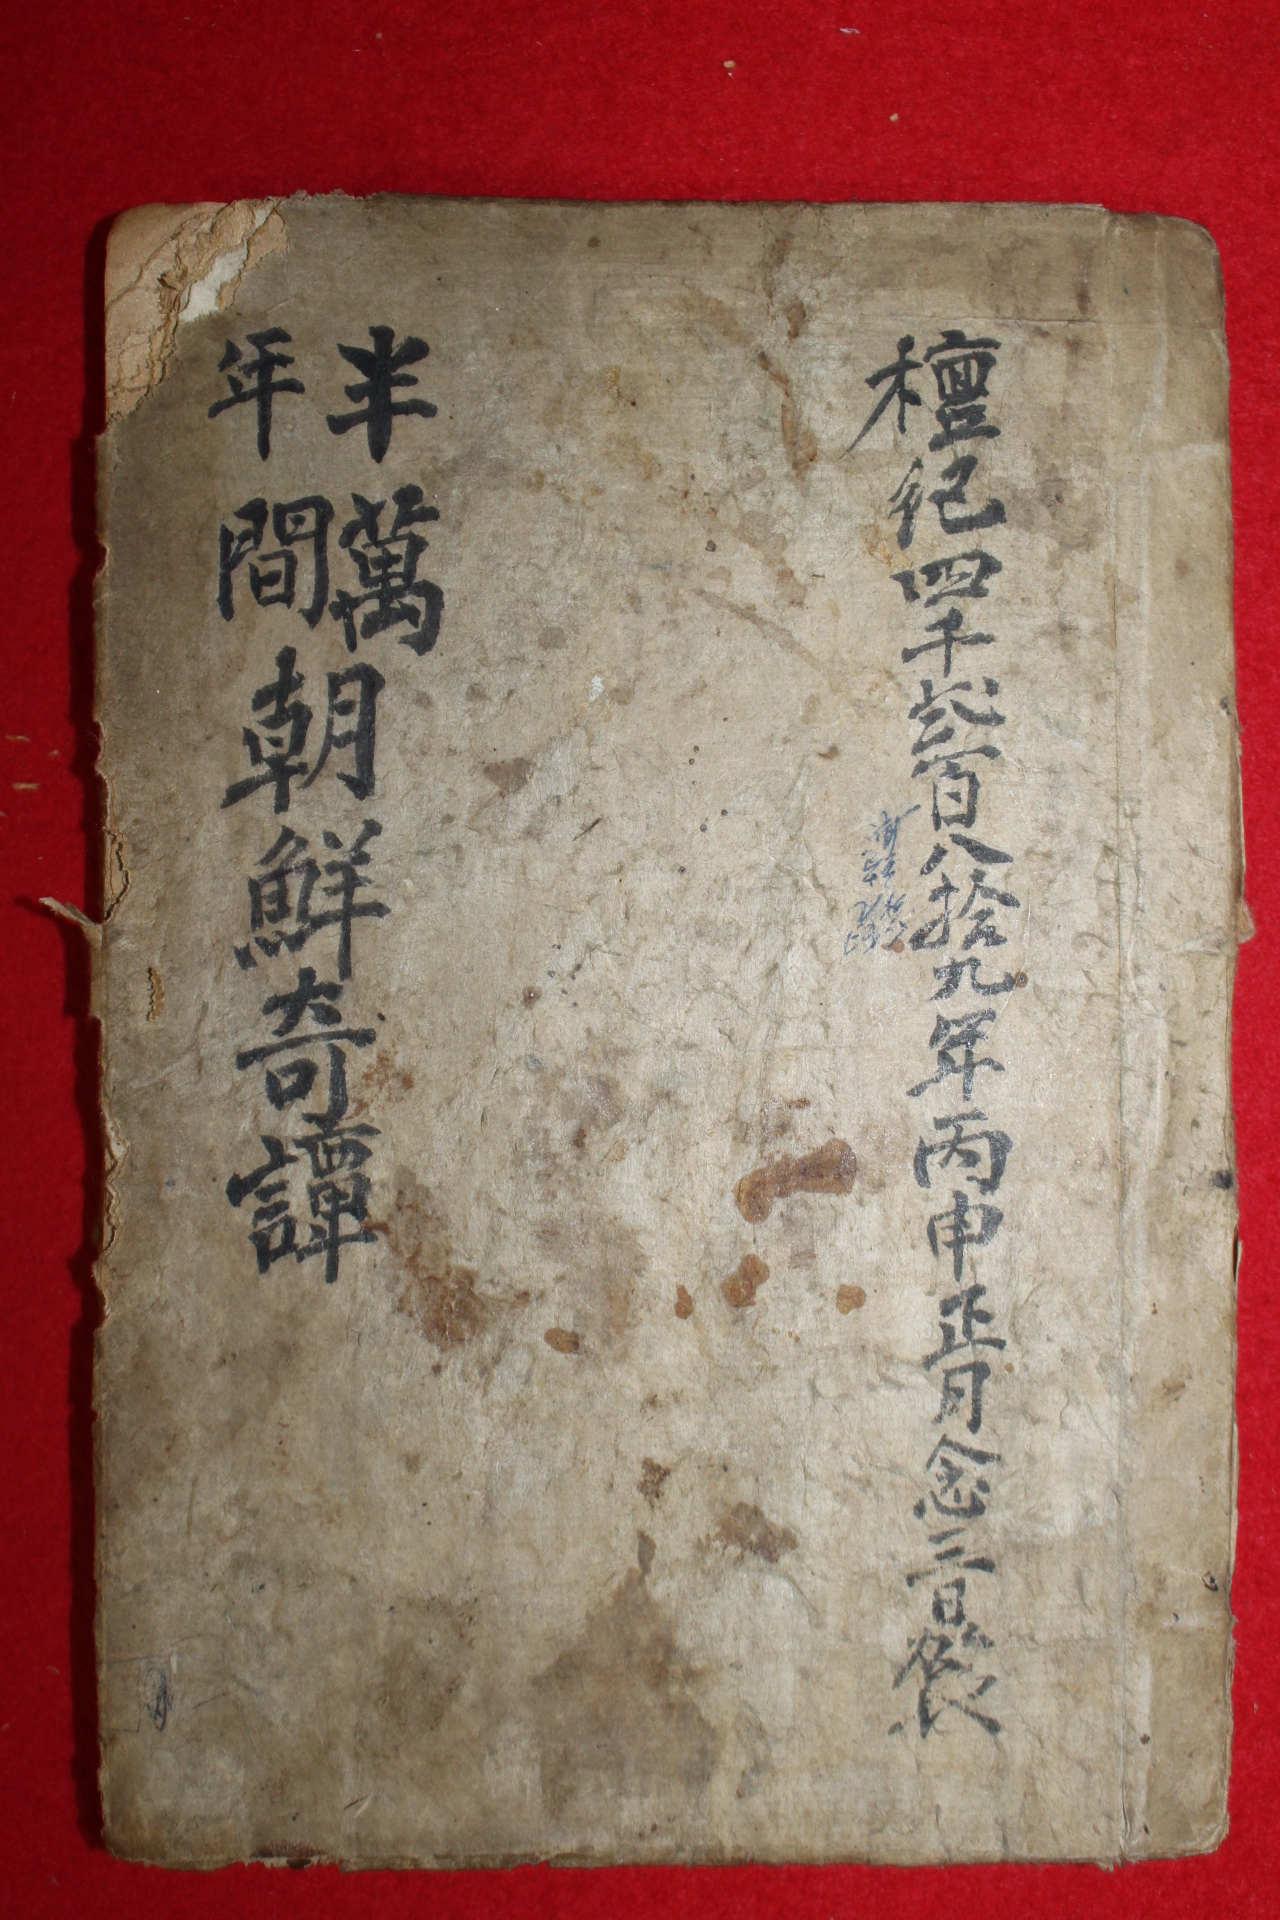 檀紀四千貳百八拾九年丙申正月念三日裝
半萬
年間
朝鮮奇譚